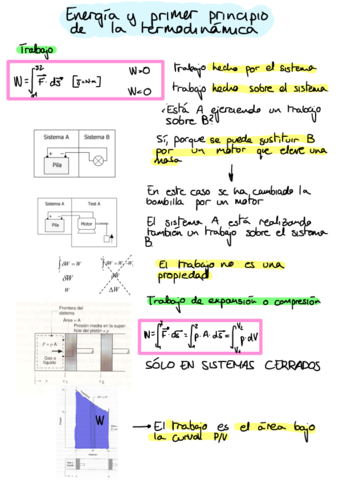 Energía y primer principio
de la termodinámica
Trabajo
W = ∫ F · ds [J=N·m]
W>0
W<0
trabajo hecho por el sistema
trabajo hecho sobre el sistema
¿Está A ejerciendo un trabajo
sobre B?
Sistema A
Sistema B
Pila
Sí, porque se puede sustituir B
por un motor que eleve una
masa
En este caso se ha cambiado la
bombilla por un motor
Sistema A
Test A
Pila
El sistema A está realizando
también un trabajo sobre el sistema
B
El trabajo no es una
propiedad
δW
W
ΔW
Trabajo de expansión o compresión
Frontera del
sistema
Área = A
Presión media en la super-
ficie del pistón = p
F = p A
Gas o
líquido
W = ∫₁² F · ds = ∫₁² p · A · ds = ∫ p · dV
SÓLO EN SISTEMAS CERRADOS
W
El trabajo es el área bajo
la curva P/V